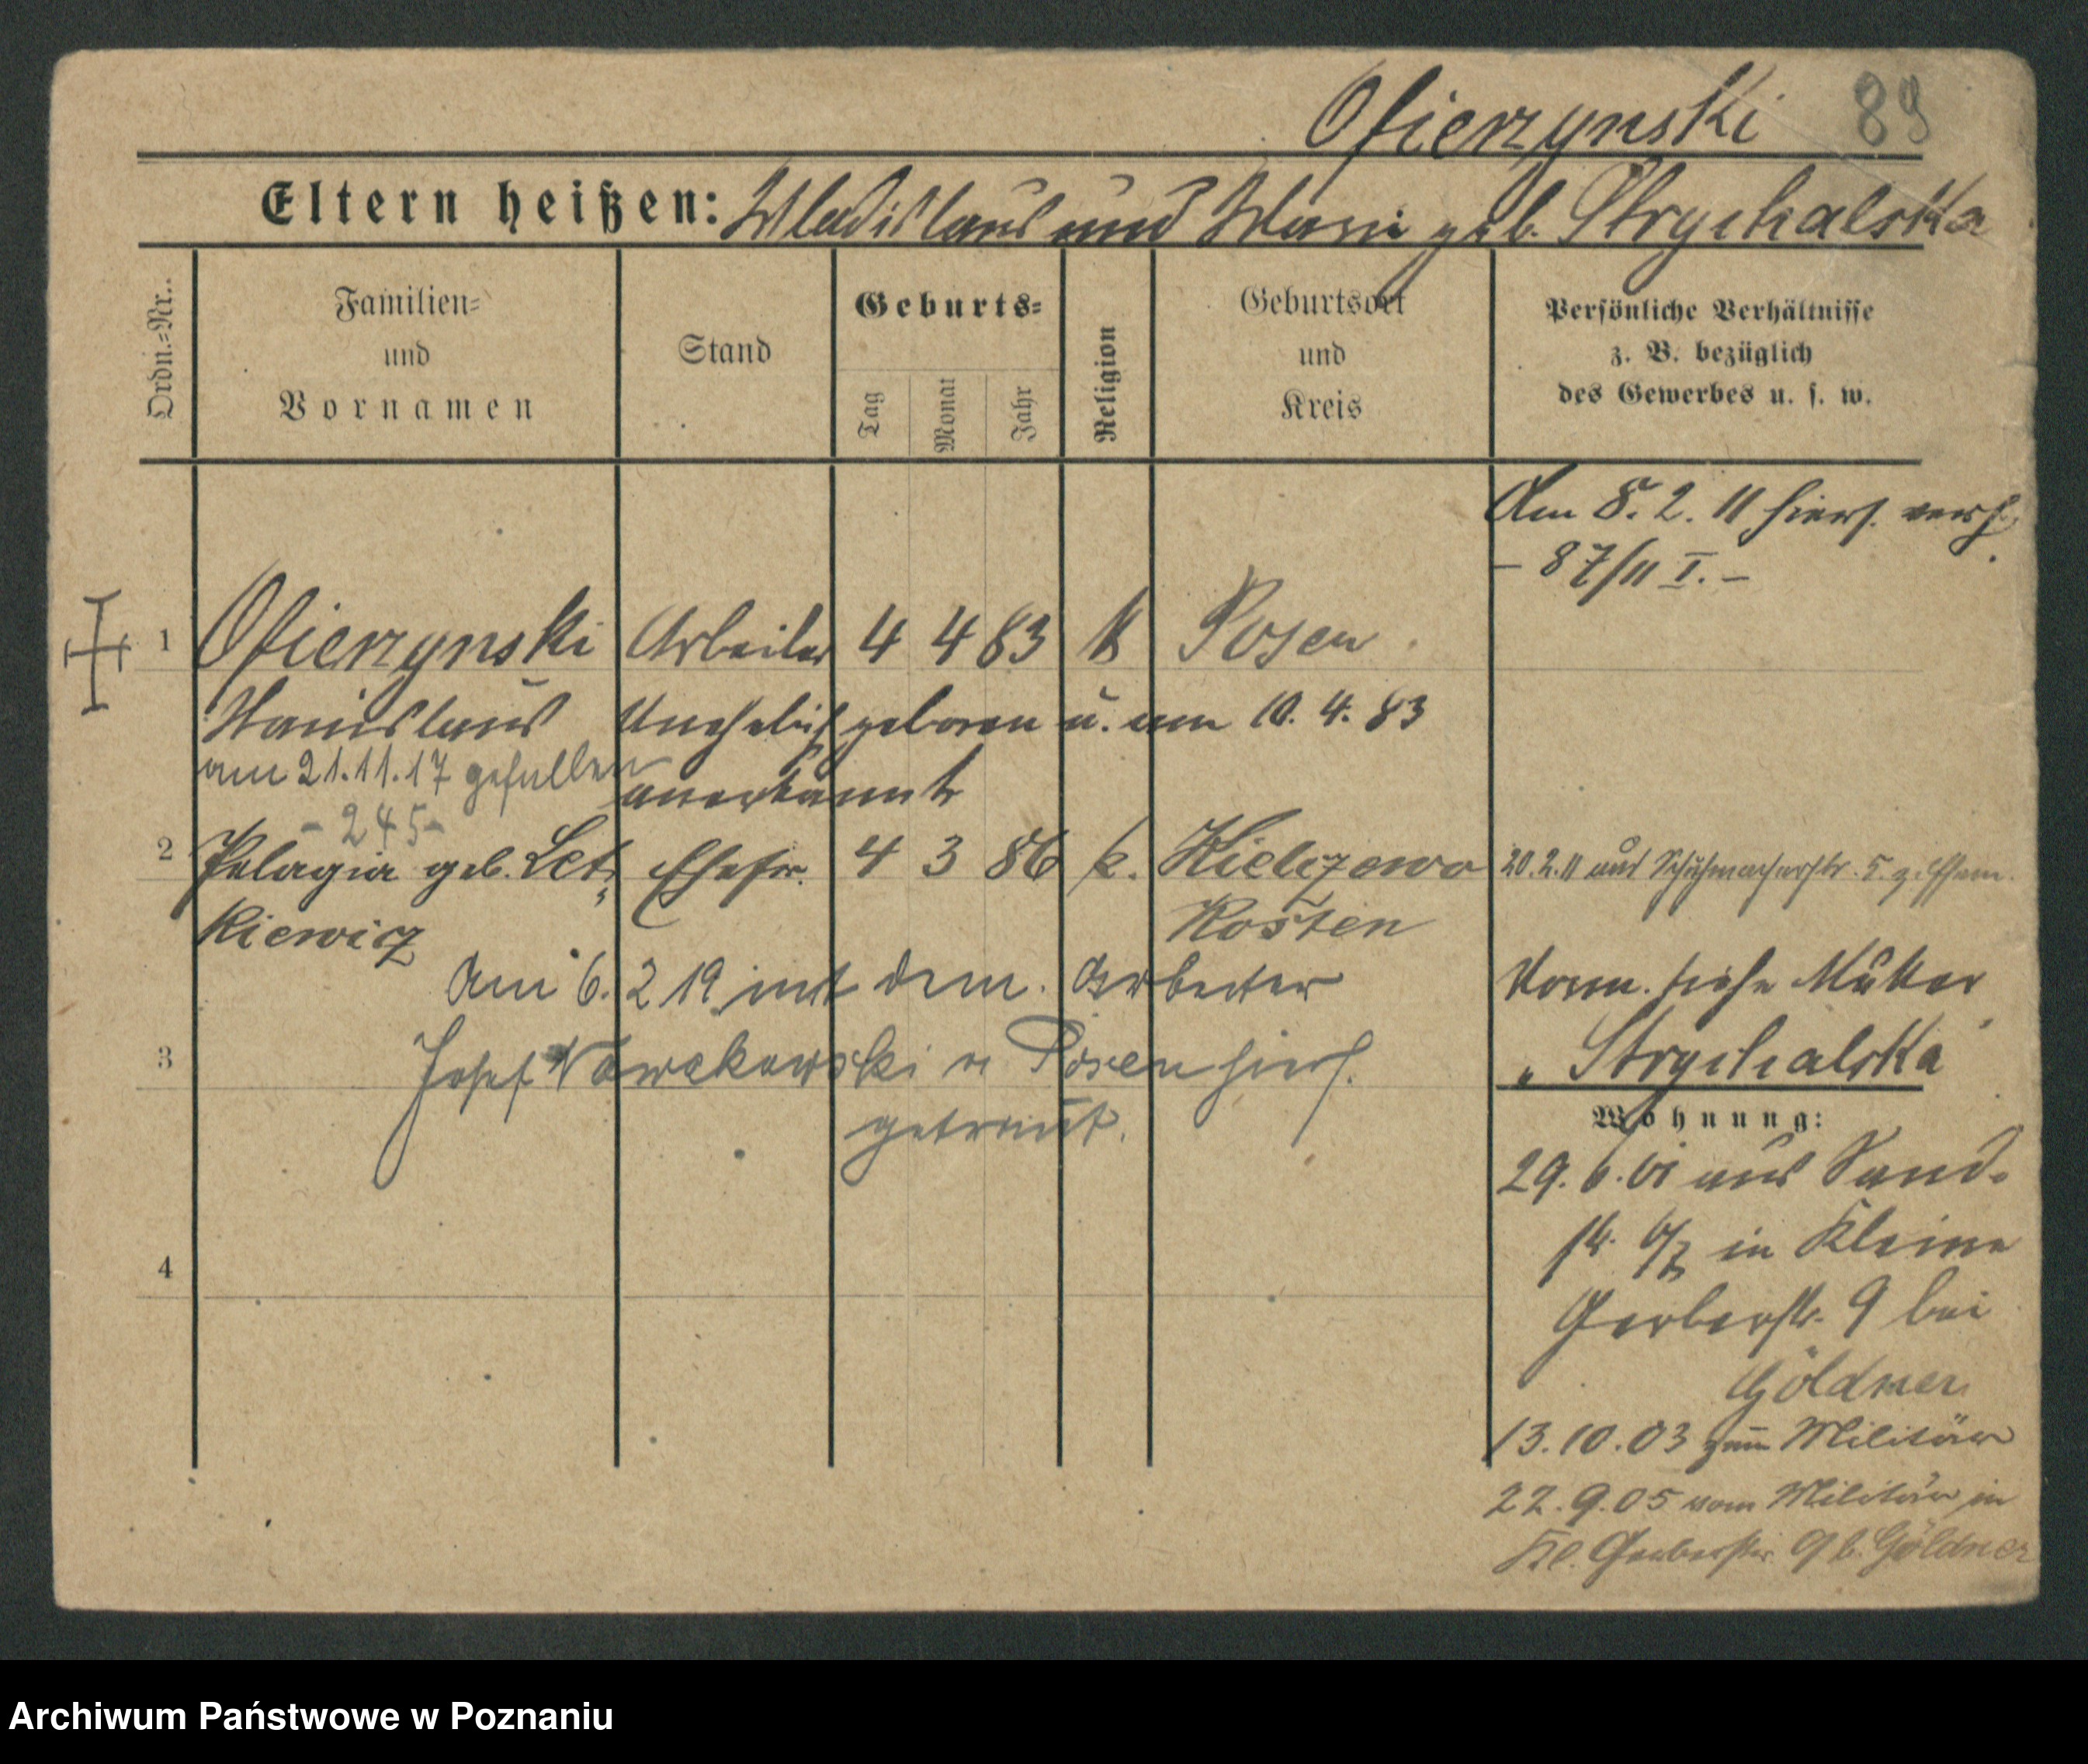 Ofierzynski 89
Eltern heißen: Wladislaus und Marie geb. Strychalska
Ordn.=Nr..
Familien=
und
Vornamen
Stand
Geburts=
Tag
Monat
Jahr
Religion
Geburtsort
und
Kreis
Persönliche Verhältnisse
z. B. bezüglich
des Gewerbes u. s. w.
Am 8. 2. 11 hiers. verh.
– 87/11 I. –
1 Ofierzynski Arbeiter 4 4 83 K Posen
Stanislaus Unehelich geboren u. am 10. 4. 83
am 21.11.17 gefallen
anerkannt
– 245 –
2 Pelagia geb. Let= Ehefr. 4 3 86 k. Kielczewo 20.2.11 aus Schuhmacherstr. 5. z. Ehem.
kiewicz Kosten
Am 6. 2 19 mit dem. Arbeiter
Josef Nowakowski in Posen hiers.
getraut.
Vorm. siehe Mutter
„ Strychalska
3
Wohnung:
29. 6. 01 aus Sand=
str. 6/7 in Kleine
Gerberstr. 9 bei
Göldner
4
13. 10. 03 zum Militär
22. 9. 05 vom Militär in
Kl. Gerberstr. 9 b. Göldner
Archiwum Państwowe w Poznaniu